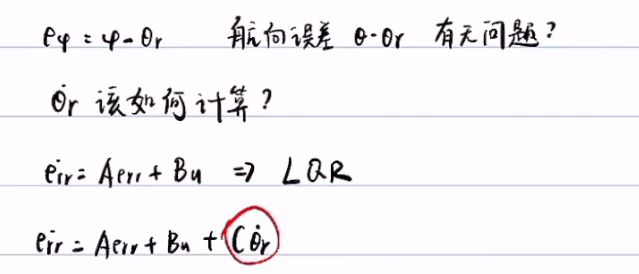 eφ = φ - θr 航向误差 θ-θr 有无问题？
θ̇r 该如何计算？
ėrr = Aerr + Bu => LQR
ėrr = Aerr + Bu + Cθ̇r